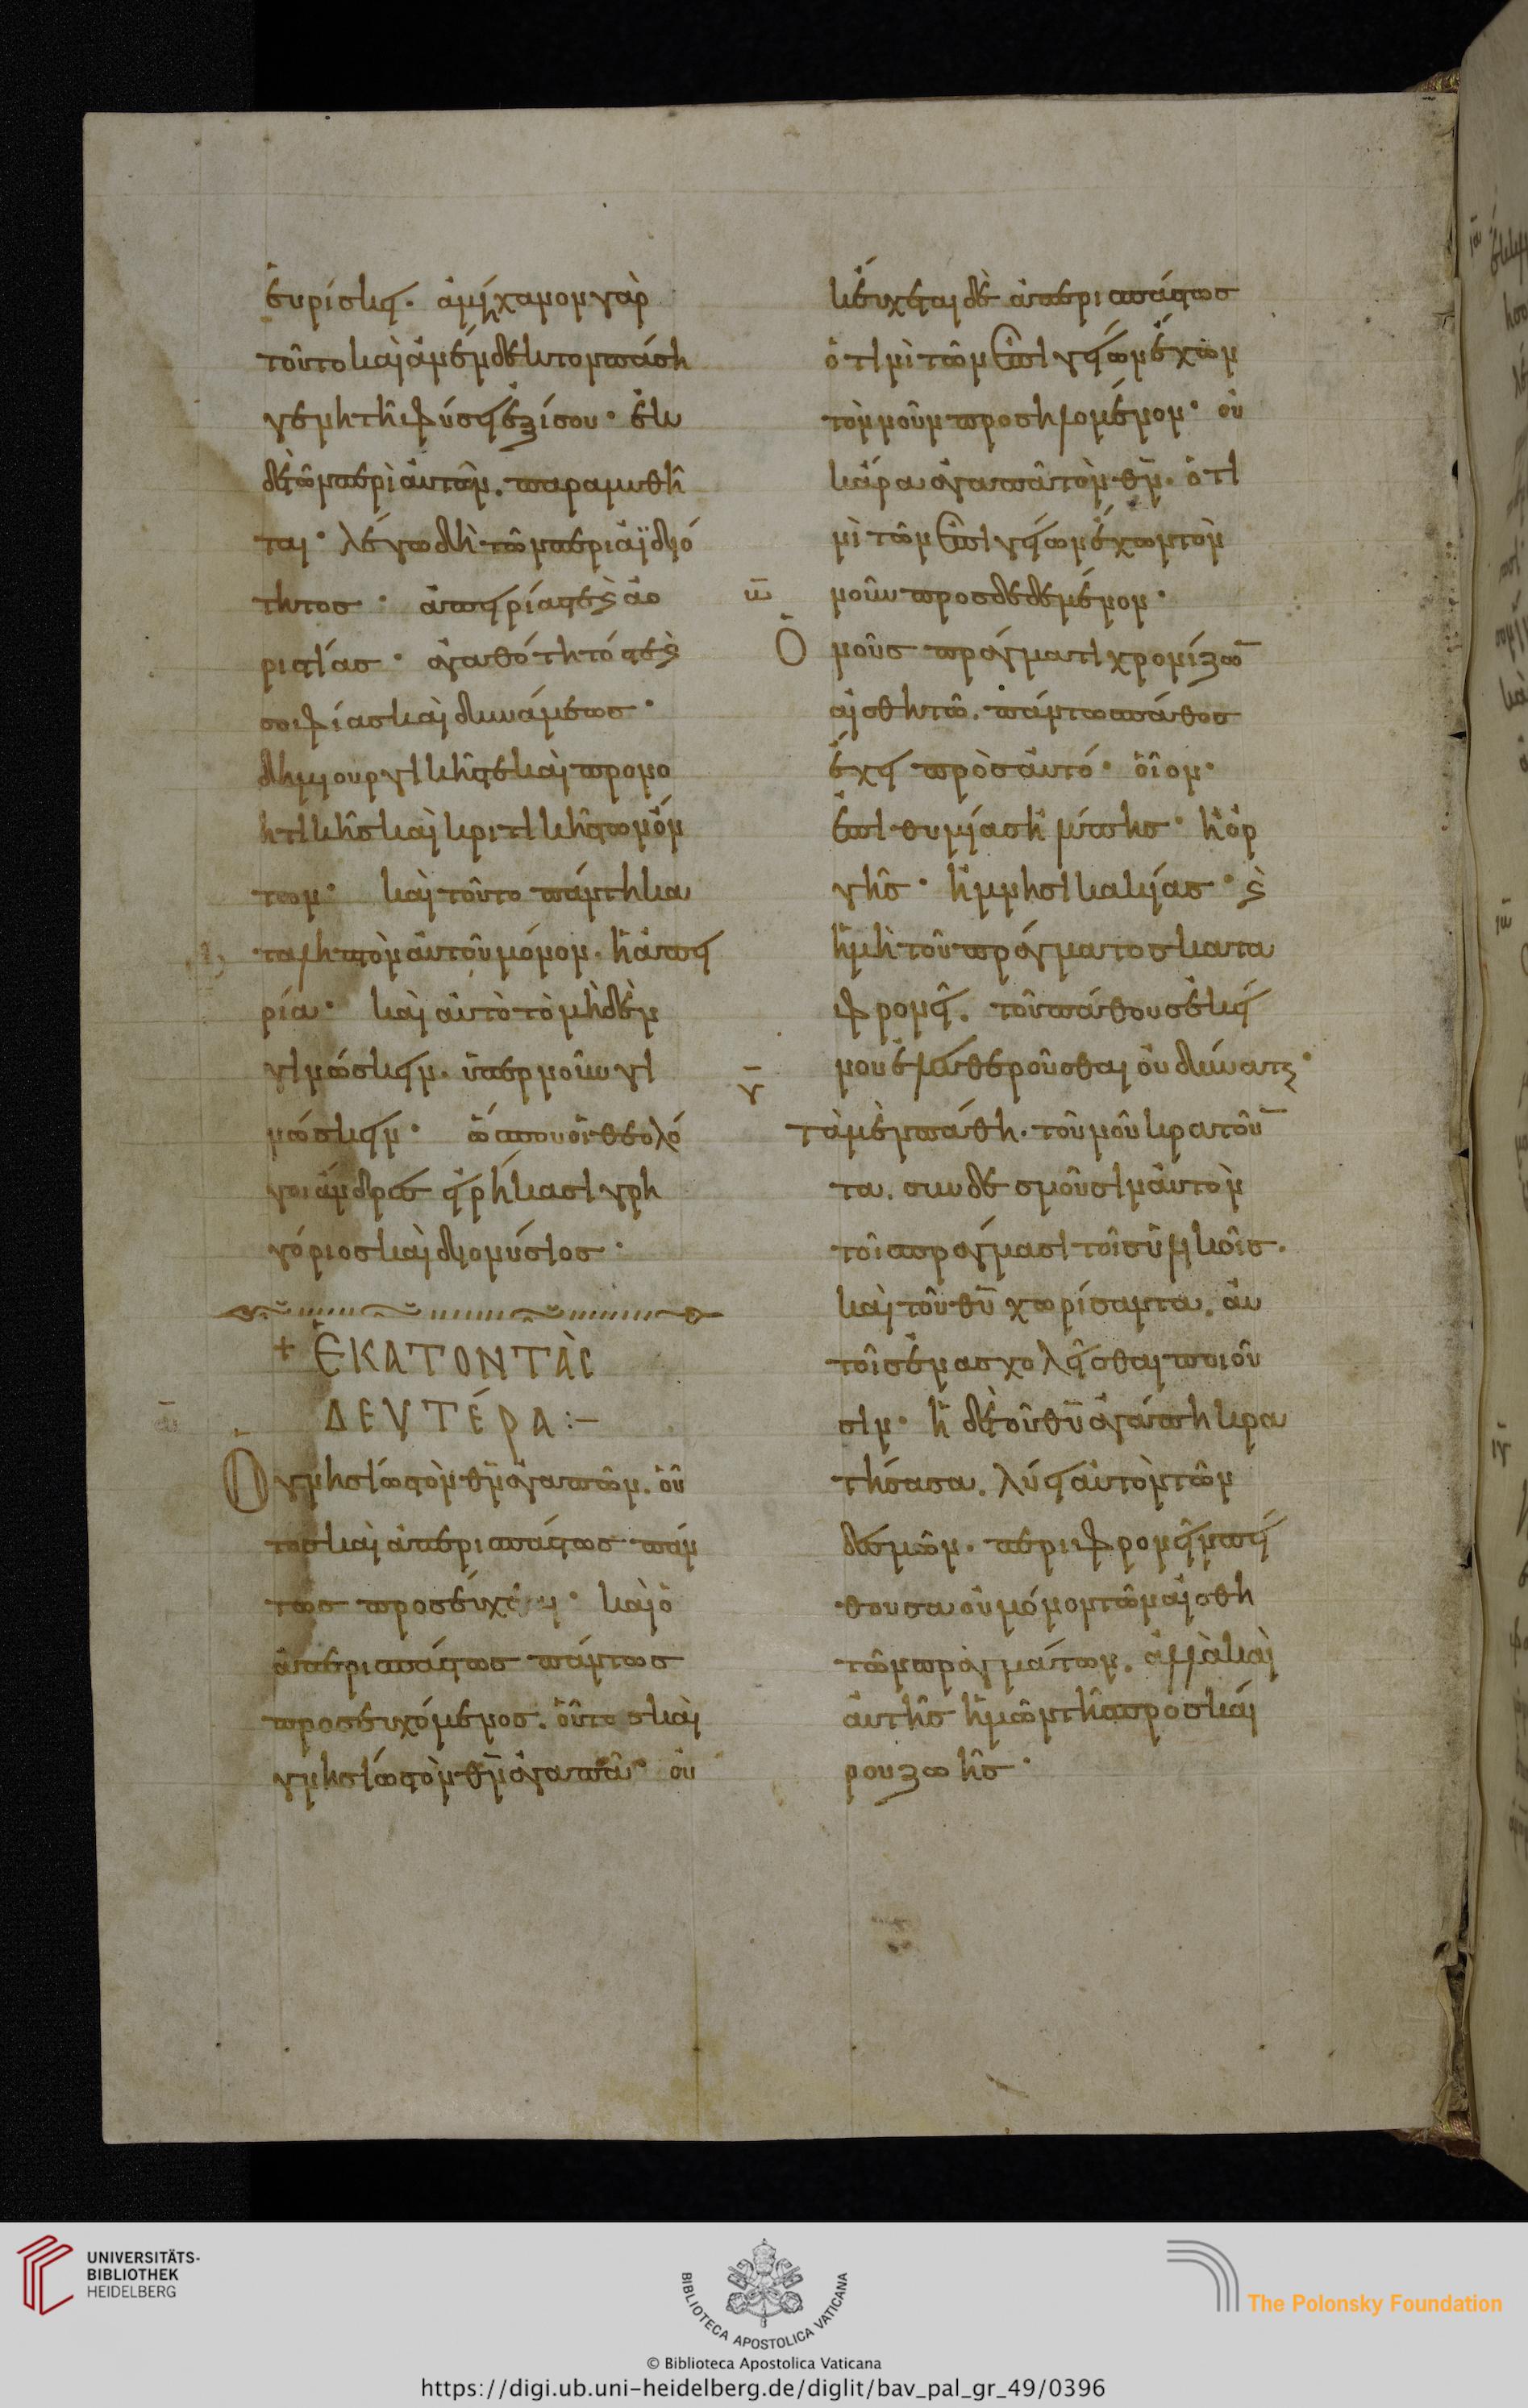 εὑρίσκει. ἀμήχανον γὰρ
τοῦτο καὶ ἀνένδεκτον πάση
γενητῆ φύσει ἐξίσου· ἐκ
δὲ τῶν περὶ αὐτὸν. παραμυθῆ
ται· λέγω δὴ τῶν περὶ ἀϊδιό
τητος· ἀπειρίας τὲ ϗ̀ ἀο
ριστίας· ἀγαθότητός τὲ ϗ̀
σοφίας καὶ δυνάμεως·
δημιουργικῆς τε καὶ προνο
ητικῆς καὶ κριτικῆς τῶν ὄν
των· καὶ τοῦτο πάντη κα
ταληπτὸν αὐτοῦ μόνον. ἡ ἀπει
ρία· καὶ αὐτὸ τὸ μὴδὲν
γινώσκειν. ὑπερ νοῦν γι
νώσκειν· ὥσπου οἱ θεολό
γοι ἄνδρες εἰρήκασι γρη
γόριος καὶ διονύσιος·
+ ἙΚΑΤΟΝΤᾺC
ΔΕΥΤΈΡΑ :–
Ὁ γνησίως τὸν θν̄ ἀγαπῶν. οὗ
τος καὶ ἀπερισπάστως πάν
τως προσεύχεται· καὶ ὁ
ἀπερισπάστως πάντως
προσευχόμενος. οὗτος καὶ
γνησίως τὸν θν̄ ἀγαπᾶ· οὐ
κ εὔχεται δὲ ἀπερισπάστως
ὅ τινὶ τῶν ἐπιγείων ἔχων
τὸν νοῦν προσηλομένον· οὐ
κ ἄρα ἀγαπᾶ τὸν θν̄. ὅ τι
νὶ τῶν ἐπιγείων ἔχων τὸν
νοῦν προσδεδεμένον·
Ὁ νοῦς πράγματι χρονίζω̄
αἰσθητῶ. πάντως πάθος
ἔχει πρὸς αὐτό· οἷον·
ἐπιθυμίας ἢ λύπης· ἢ ὀρ
γῆς· ἢ μνησικακίας· ϗ̀
ἢ μὴ τοῦ πράγματος κατα
φρονεῖ. τοῦ πάθους ἐκεί
νου ἐλευθεροῦσθαι οὐ δύναται·
γ̄
Τὰ μὲν πάθη. τοῦ νοῦ κρατοῦ̄
τα. συνδεσμοῦσιν αὐτὸν
τοῖς πράγμασι τοῖς ὑλικοῖς.
καὶ τοῦ θῡ χωρίσαντα. αὐ
τοῖς ἐνασχολεῖσθαι ποιοῦ
σιν· ἡ δὲ τοῦ θῡ ἀγάπη κρα
τήσασα. λύει αὐτὸν τῶν
δεσμῶν. περιφρονεῖν πεί
θουσα οὐ μόνον τῶν αἰσθη
τῶν πραγμάτων. ἀλλὰ καὶ
αὐτῆς ἡμῶν τῆς προσκαί
ρου ζωῆς·
UNIVERSITÄTS-
BIBLIOTHEK
HEIDELBERG
BIBLIOTECA APOSTOLICA VATICANA
© Biblioteca Apostolica Vaticana
The Polonsky Foundation
https://digi.ub.uni-heidelberg.de/diglit/bav_pal_gr_49/0396